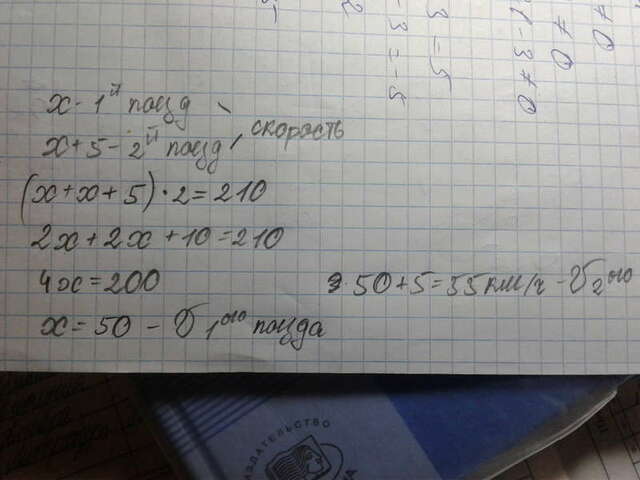 x - 1ый поезд
x + 5 - 2ый поезд, скорость
(x + x + 5) · 2 = 210
2x + 2x + 10 = 210
4x = 200
x = 50 - V 1ого поезда
50 + 5 = 55 км/ч - V 2ого
ЗДАТЕЛЬСТВО
3 = 5
- 3 ≠ 0
≠ 0
≠ 0